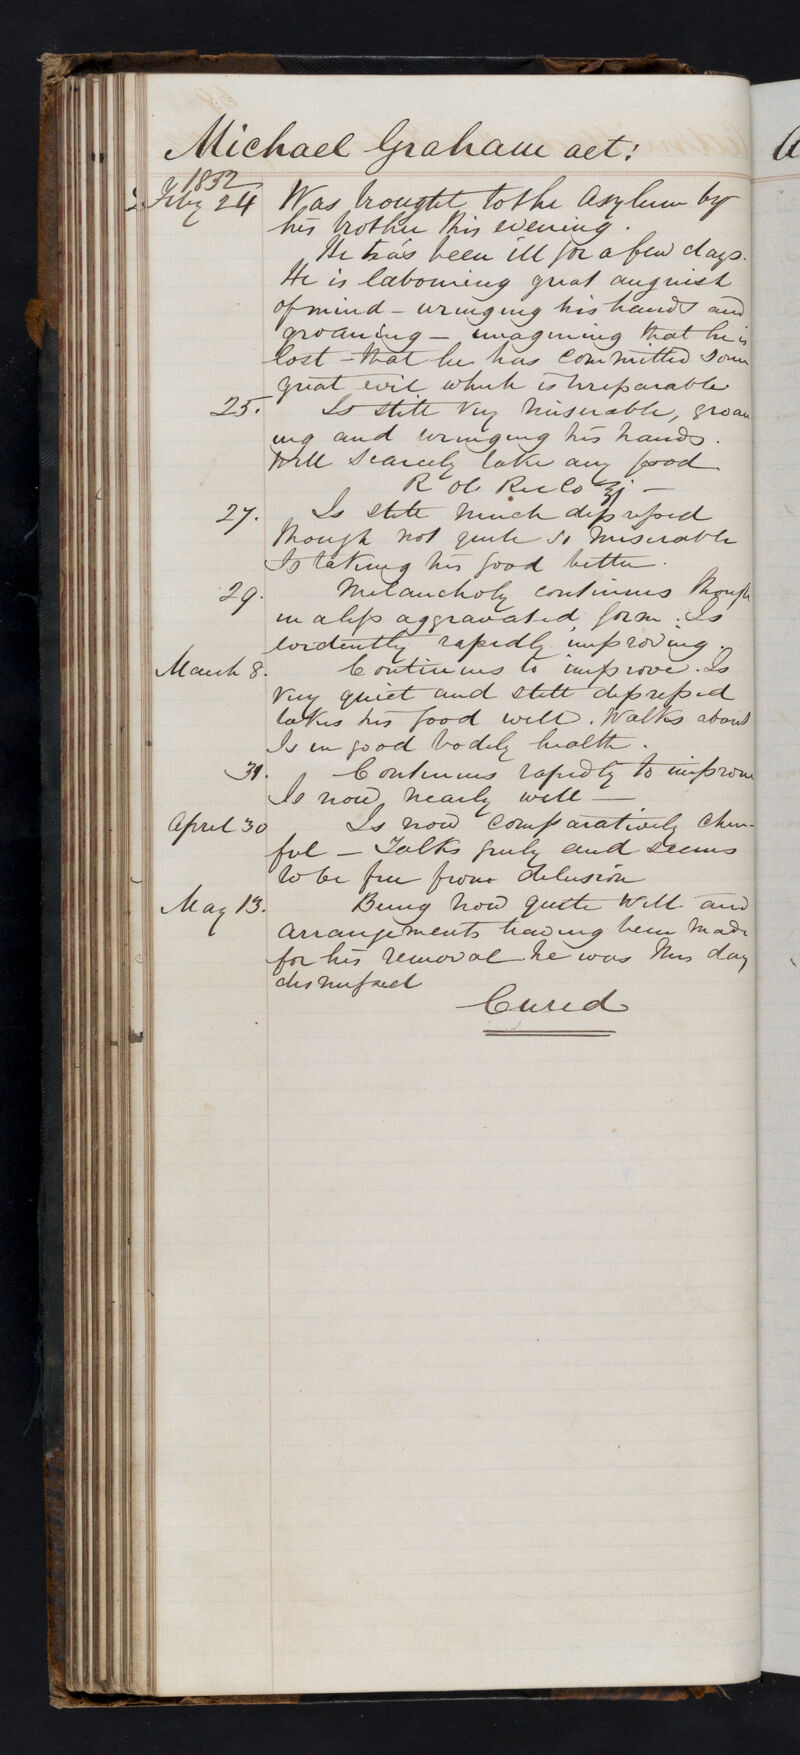 Michael Graham aet:
1832
Feby 24 Was brought to the Asylum by
his brother this evening.
He has been ill for a few days.
He is labouring great anguish
of mind – wringing his hands and
groaning – imagining that he is
lost – that he has committed some
great evil which is irreparable
25. Is still very miserable, groan
ing and wringing his hands.
Will scarcely take any food
R Ol Ric Co ℥j –
27. Is still much depressed
though not quite so miserable
Is taking his food better.
29. Melancholy continues though
in a less aggravated form. Is
evidently rapidly improving.
March 8. Continues to improve. Is
very quiet and still depressed
takes his food well. Walks about
Is in good bodily health.
31. Continues rapidly to improve
Is now nearly well —
April 30 Is now comparatively cheer-
ful – Talks freely and seems
to be free from delusion
May 13. Being now quite well and
arrangements having been made
for his removal he was this day
dismissed
Cured